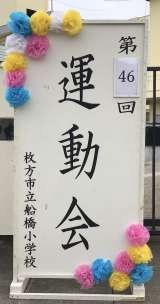 第46回
運動会
枚方市立船橋小学校